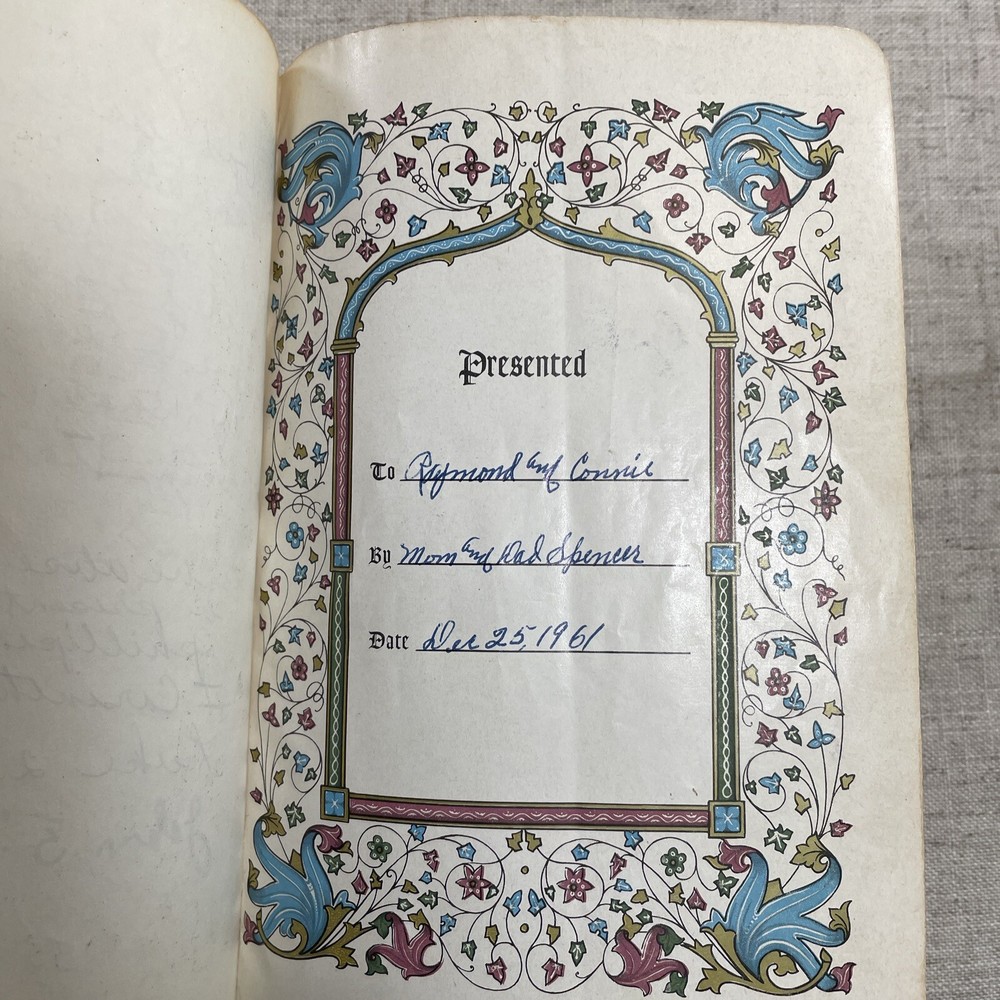 Presented
To Raymond and Connie
By Mom and Dad Spencer
Date Dec 25, 1961